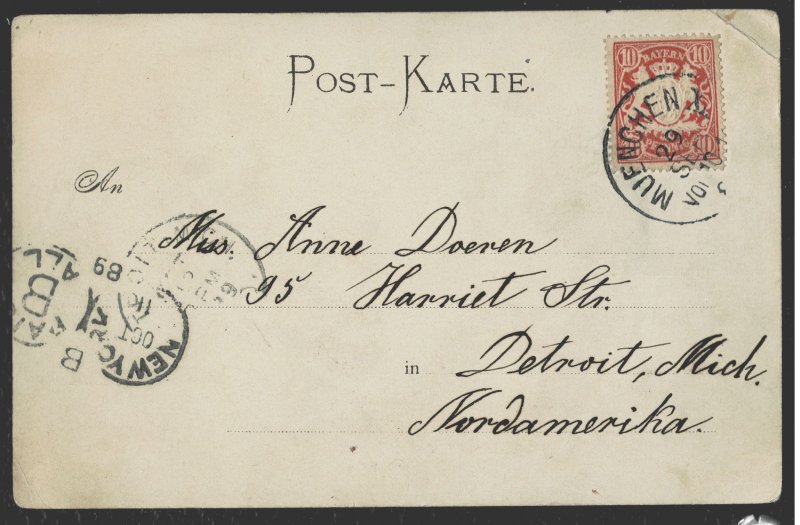 POST-KARTE.
10 BAYERN 10
MUENCHEN
29
SE
VOR
An
Miss. Anne Doeren
95 Harriet Str.
in Detroit, Mich.
Nordamerika.
NEW YORK
OCT
89
B
ALL